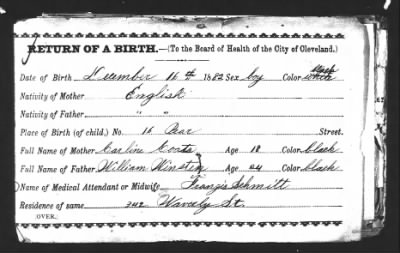 RETURN OF A BIRTH.—(To the Board of Health of the City of Cleveland.)
Date of Birth December 16th 1882 Sex boy Color white black
Nativity of Mother English
Nativity of Father " "
Place of Birth (of child.) No. 16 Pear Street.
Full Name of Mother Carline Age 18 Color black
Full Name of Father William Winston Age 24 Color black
Name of Medical Attendant or Midwife, Franzis Schmitt
Residence of same 342 Waverly St.
(OVER.)